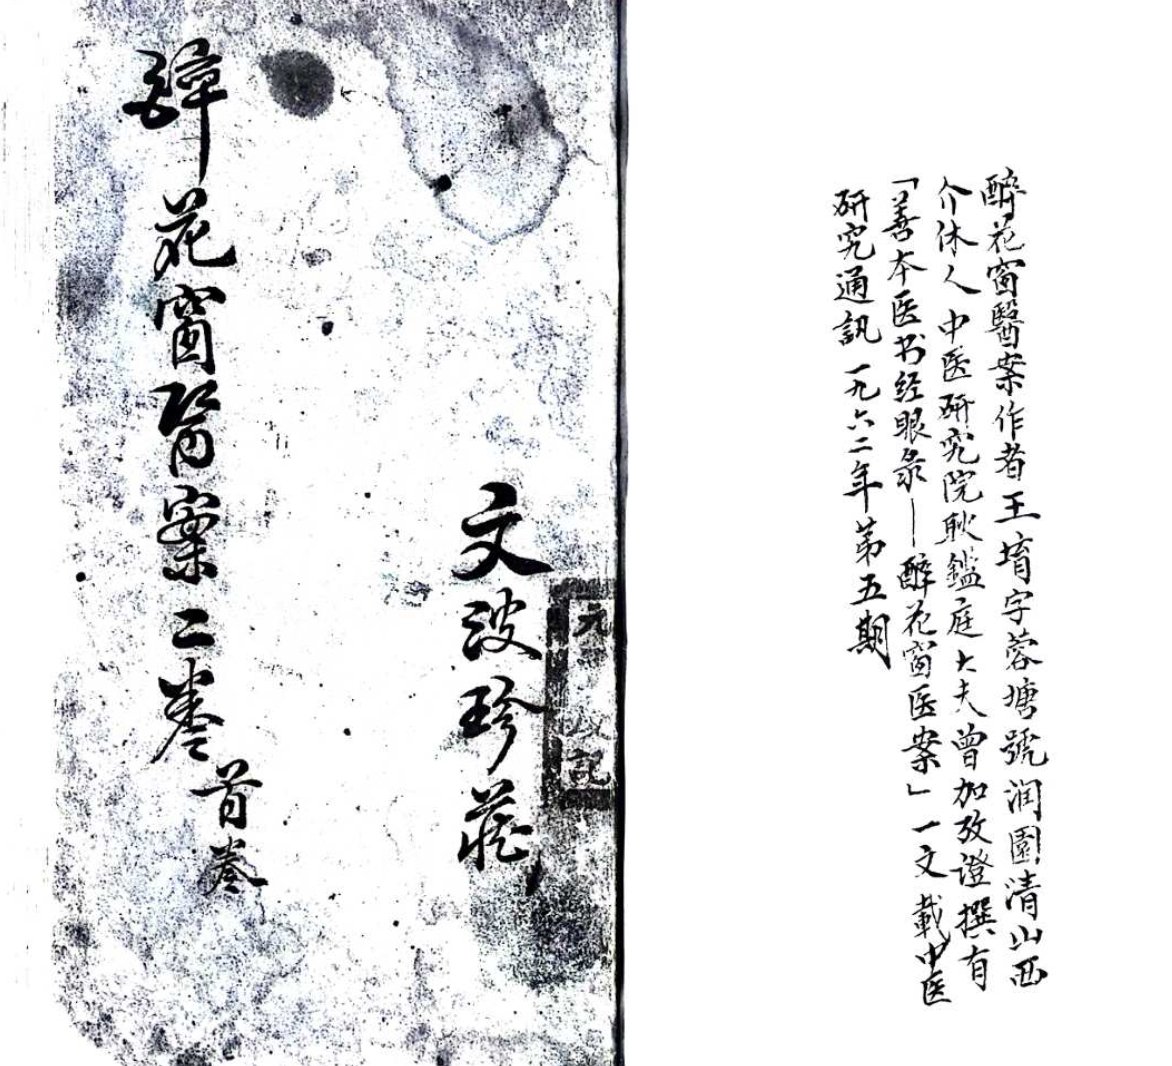 醉花窗醫案作者王堉字蓉塘號润園清山西
介休人中医研究院耿鑑庭大夫曾加攷證撰有
「善本医书经眼录—醉花窗医案」一文載中医
研究通訊一九六二年第五期
文波珍藏
醉花窗醫案二卷
首卷
元
記